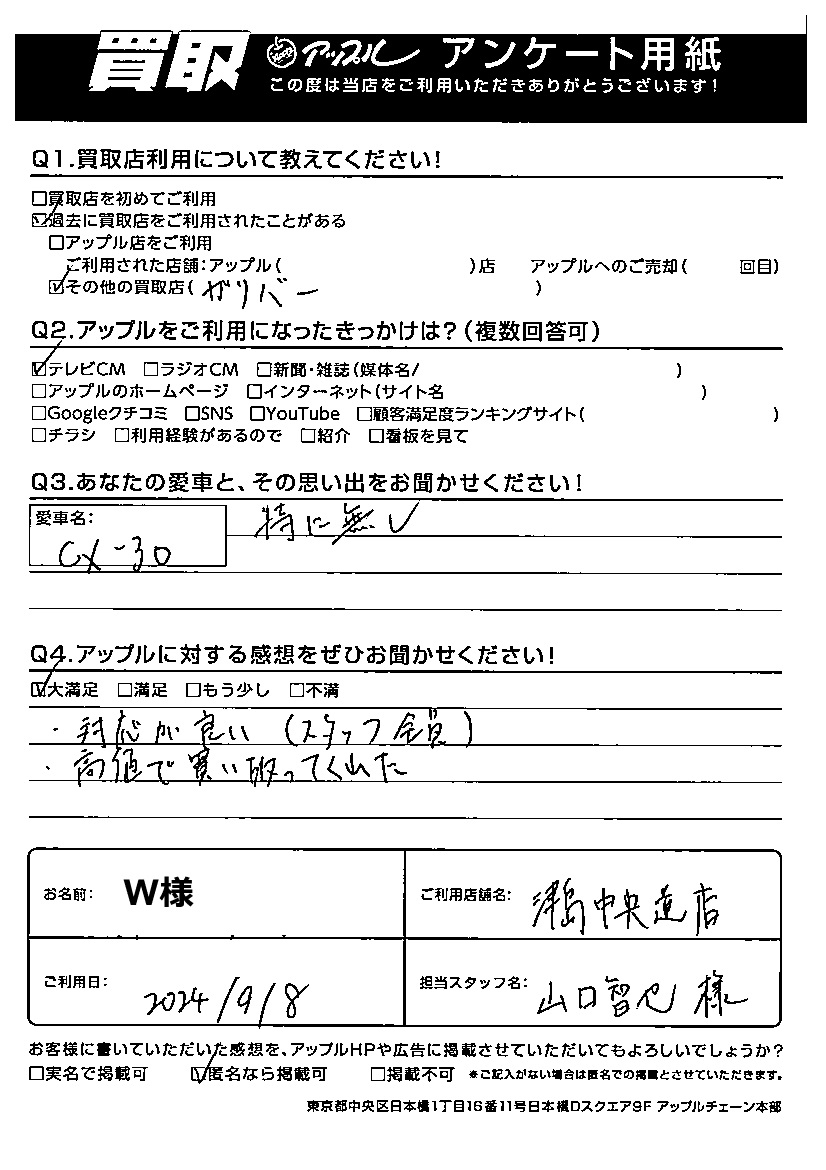 買取 アップル アンケート用紙
この度は当店をご利用いただきありがとうございます!
Q1.買取店利用について教えてください!
□買取店を初めてご利用
☑過去に買取店をご利用されたことがある
□アップル店をご利用
ご利用された店舗:アップル( )店 アップルへのご売却( 回目)
☑その他の買取店( ガリバー )
Q2.アップルをご利用になったきっかけは?(複数回答可)
☑テレビCM □ラジオCM □新聞・雑誌(媒体名/ )
□アップルのホームページ □インターネット(サイト名 )
□Googleクチコミ □SNS □YouTube □顧客満足度ランキングサイト( )
□チラシ □利用経験があるので □紹介 □看板を見て
Q3.あなたの愛車と、その思い出をお聞かせください!
愛車名: 特に無し
CX-30
Q4.アップルに対する感想をぜひお聞かせください!
☑大満足 □満足 □もう少し □不満
・対応が良い(スタッフ全員)
・高値で買い取ってくれた
お名前: W様 ご利用店舗名: 津島中央道店
ご利用日: 2024/9/8 担当スタッフ名: 山口智也 様
お客様に書いていただいた感想を、アップルHPや広告に掲載させていただいてもよろしいでしょうか?
□実名で掲載可 ☑匿名なら掲載可 □掲載不可 ※ご記入がない場合は匿名での掲載とさせていただきます。
東京都中央区日本橋1丁目16番11号日本橋Dスクエア9F アップルチェーン本部